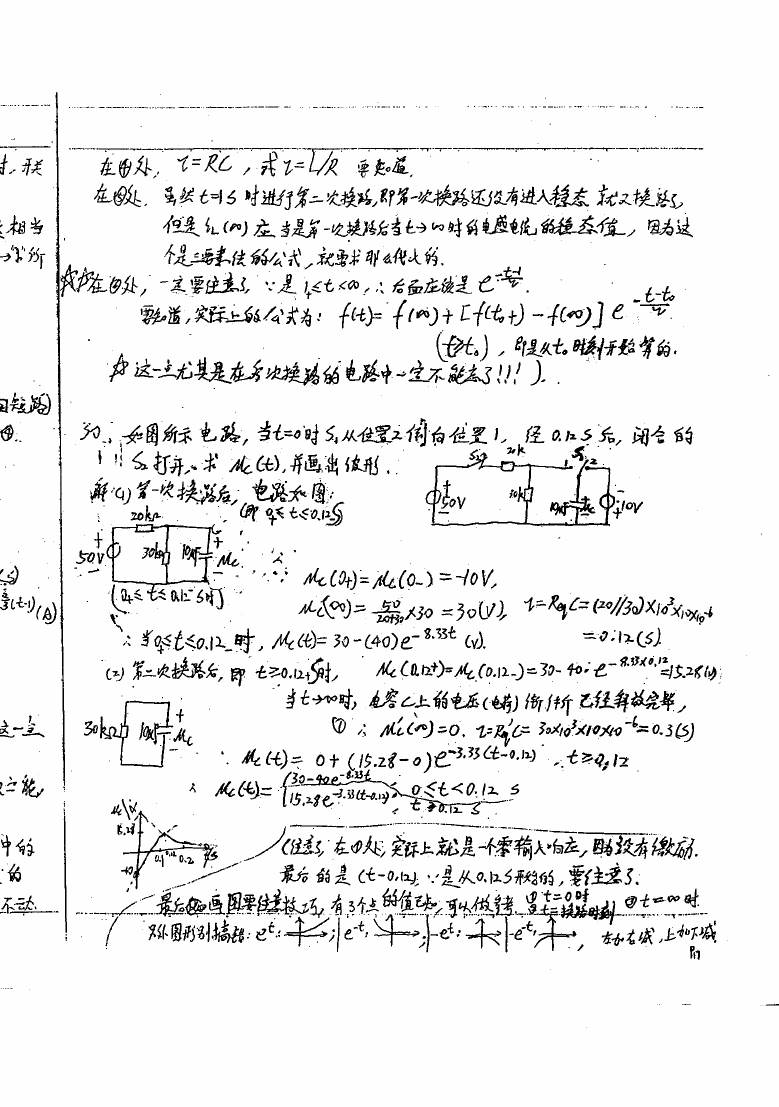 在④处，τ=RC，或τ=L/R 要知道.
在④处，虽然t=1S时进行第二次换路,即第一次换路还没有进入稳态就又换路了,
但是iL(∞)应当是第一次换路后当t→∞时的电感电流的稳态值，因为这
个是三要素法的公式，就要求那么代入的.
☆☆在④处，一定要注意了 ∵是1₊≤t<∞,∴后面应该是
要知道，实际上的公式为： f(t)= f(∞)+[f(t₀+)-f(∞)] e^{-\frac{t-t₀}{τ}}
(t≥t₀)，即是从t₀时刻开始算的.
☆这一点尤其是在多次换路的电路中一定不能忘了!!!)
30、如图所示电路，当t=0时S₁从位置2倒向位置1，经0.12S后，闭合的
!!! S₂打开,求Uc(t),并画出波形.
S₂ 20k S₁ 1 2
50V 30k 10μF Uc 10V
解:(1)第一次换路后，电路如图:
(即0₊≤t≤0.12₋S)
20kΩ
50V 30kΩ 10μF Uc
(0₊≤t≤0.12₋S时)
∴ Uc(0+)=Uc(0-)=-10V,
Uc(∞)=\frac{50}{20+30}×30=30(V), τ=ReqC=(20//30)×10³×10×10⁻⁶
=0.12(S)
∴当0₊≤t≤0.12₋时, Uc(t)=30-(40)e^{-8.33t} (V).
(2)第二次换路后,即t≥0.12₊S时, Uc(0.12+)=Uc(0.12-)=30-40·e^{-8.33×0.12}=15.28(V)
当t→∞时,电容C上的电压(电荷)已经释放完毕,
30kΩ 10μF Uc
① ∴Uc'(∞)=0. τ=Req'C=30×10³×10×10⁻⁶=0.3(S)
∴ Uc(t)=0+(15.28-0)e^{-3.33(t-0.12)}, t≥0.12
∴ Uc(t)={30-40e^{-8.33t}, 0≤t<0.12 S
15.28e^{-3.33(t-0.12)}, t≥0.12 S
Uc/V
15.28
0.1 0.12 0.2 t/S
-10
(注意了 在①处,实际上就是一个零输入响应,因为没有激励.
最后的是(t-0.12),∵是从0.12S开始的,要注意了.
最后画图要注意技巧,有3个点的值已知,可以做参考 ①t=0时 ②t=换路时刻 ③t=∞时
另外图形别搞错: e^t: e^{-t}: -e^t: -e^{-t}: ，左加右减,上加下减
时，开关
相当
短路)
④.
(S)
(t-1)(A)
这一点
中的
的
不动.